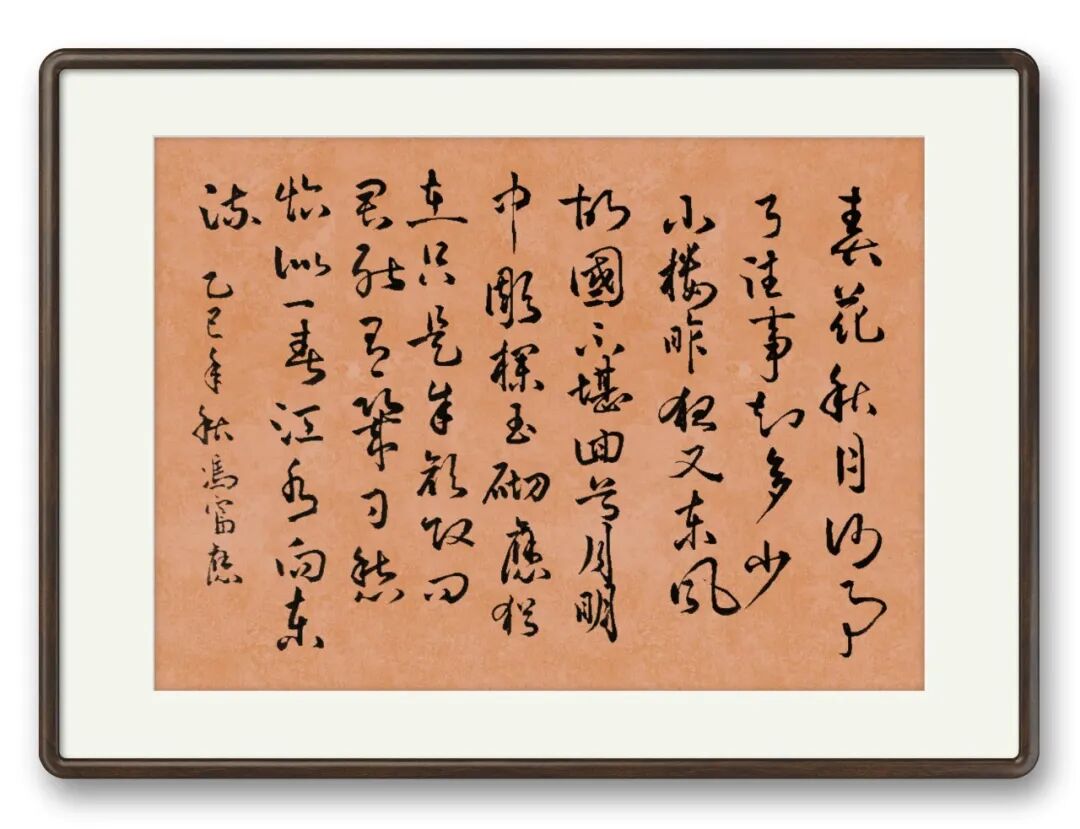 春花秋月何时
了往事知多少
小楼昨夜又东风
故國不堪回首月明
中雕欄玉砌應猶
在只是朱颜改问
君能有幾多愁
恰似一春江水向东
流 乙巳年秋馮富